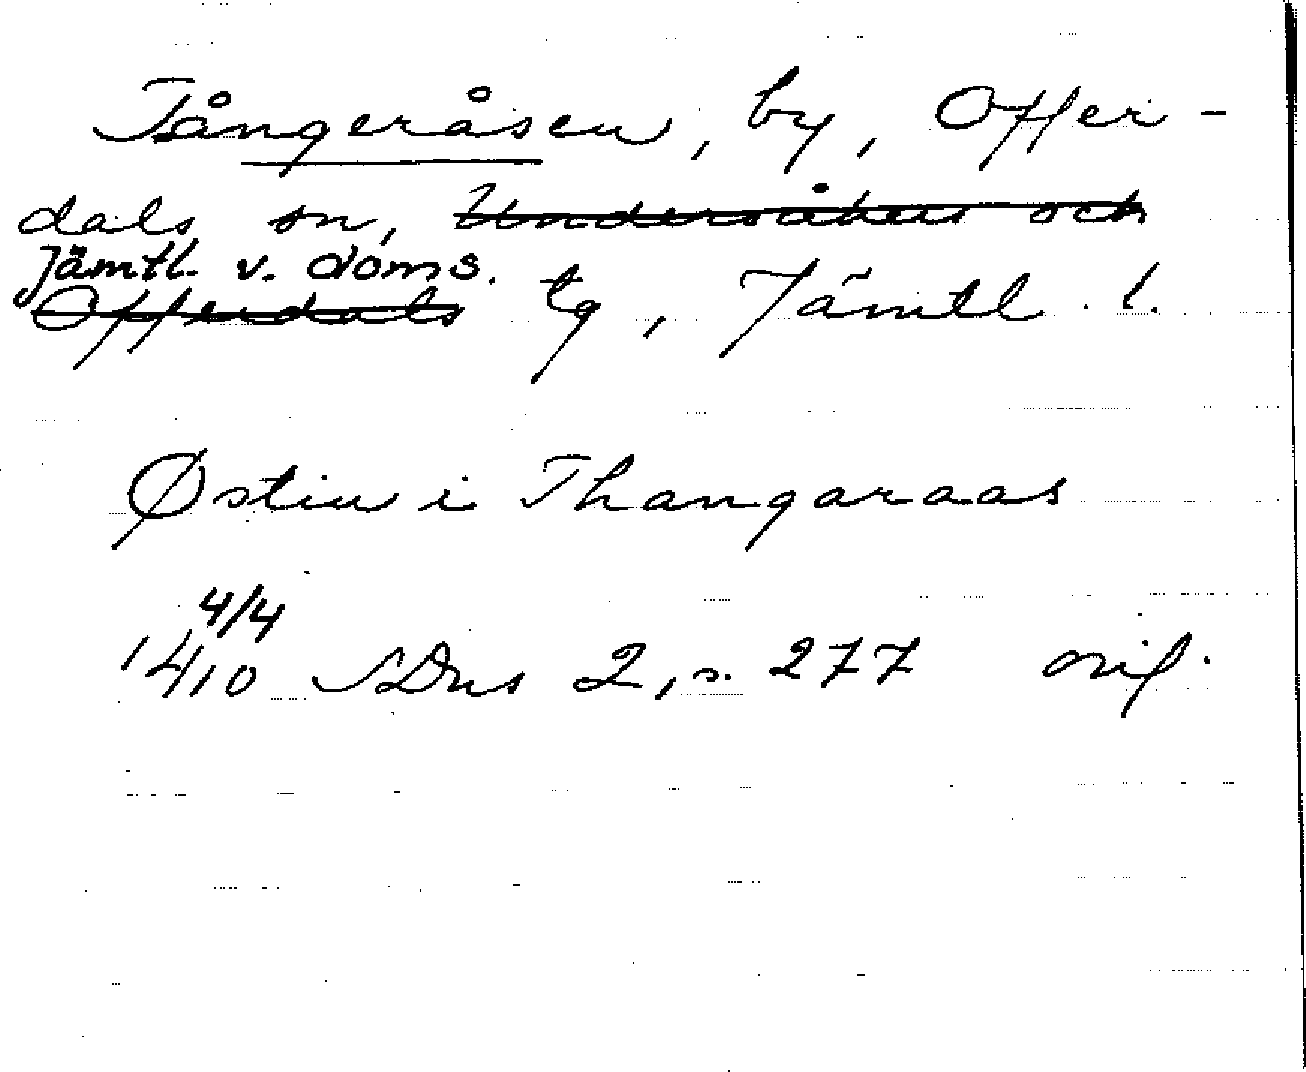 Tångeråsen, by, Offer-
dals sn, Undersåkers och
Jämtl. v. doms.
Offerdals tg, Jämtl. l.
Østin i Thangaraas
4/4
1410 SDns 2, s. 277 orig.